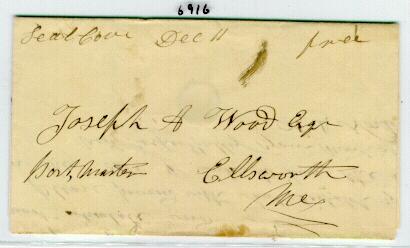 6916
Seal Cove Dec 11 free
Joseph A Wood Esqr
Post, Master Ellsworth
Me